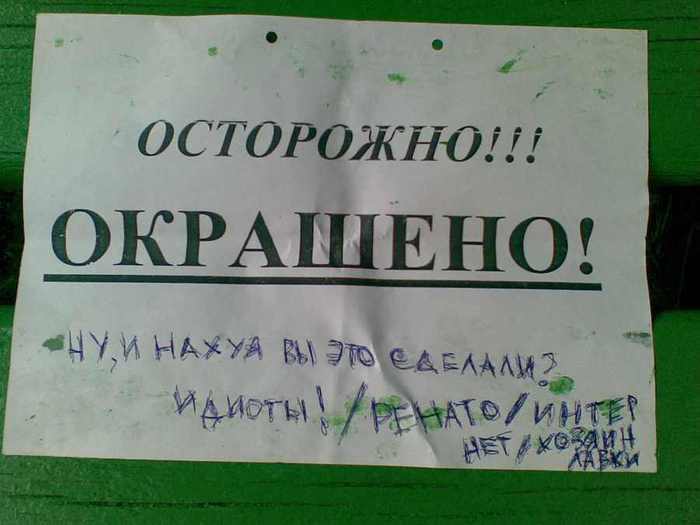 ОСТОРОЖНО!!!
ОКРАШЕНО!
НУ, И НАХУЯ ВЫ ЭТО СДЕЛАЛИ?
ИДИОТЫ! / РЕНАТО / ИНТЕР
НЕТ / ХОЗЯИН
ЛАВКИ